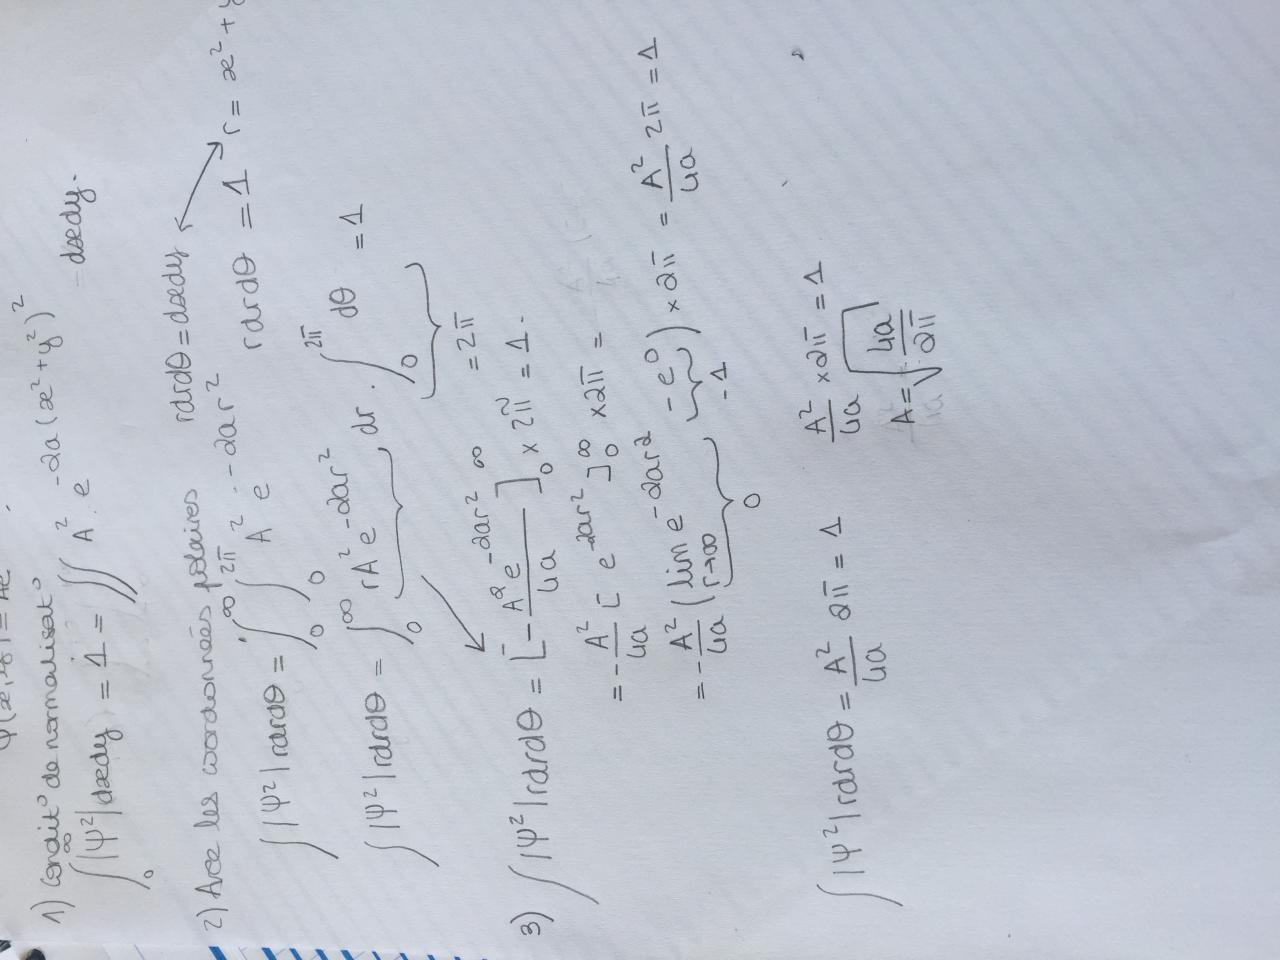 1) Condit° de normalisat°
∫₀^∞ |ψ²| dxdy = 1 = ∬ A² e^{-2a(x²+y²)²} dxdy.
2) Avec les coordonnées polaires rdrdθ = dxdy ↔ r = x² +
∫ |ψ²| rdrdθ = ∫₀^∞ ∫₀^{2π} A² e^{-2ar²} rdrdθ = 1
∫ |ψ²| rdrdθ = ∫₀^∞ rA² e^{-2ar²} dr . ∫₀^{2π} dθ = 1
= 2π
3) ∫ |ψ²| rdrdθ = [ - A² e^{-2ar²} / 4a ]₀^∞ × 2π = 1.
= - A²/4a [ e^{-2ar²} ]₀^∞ × 2π =
= - A²/4a ( lim r→∞ e^{-2ar²} - e⁰ ) × 2π = A²/4a 2π = 1
0 -1
∫ |ψ²| rdrdθ = A²/4a 2π = 1 A²/4a × 2π = 1
A = √(4a/2π)